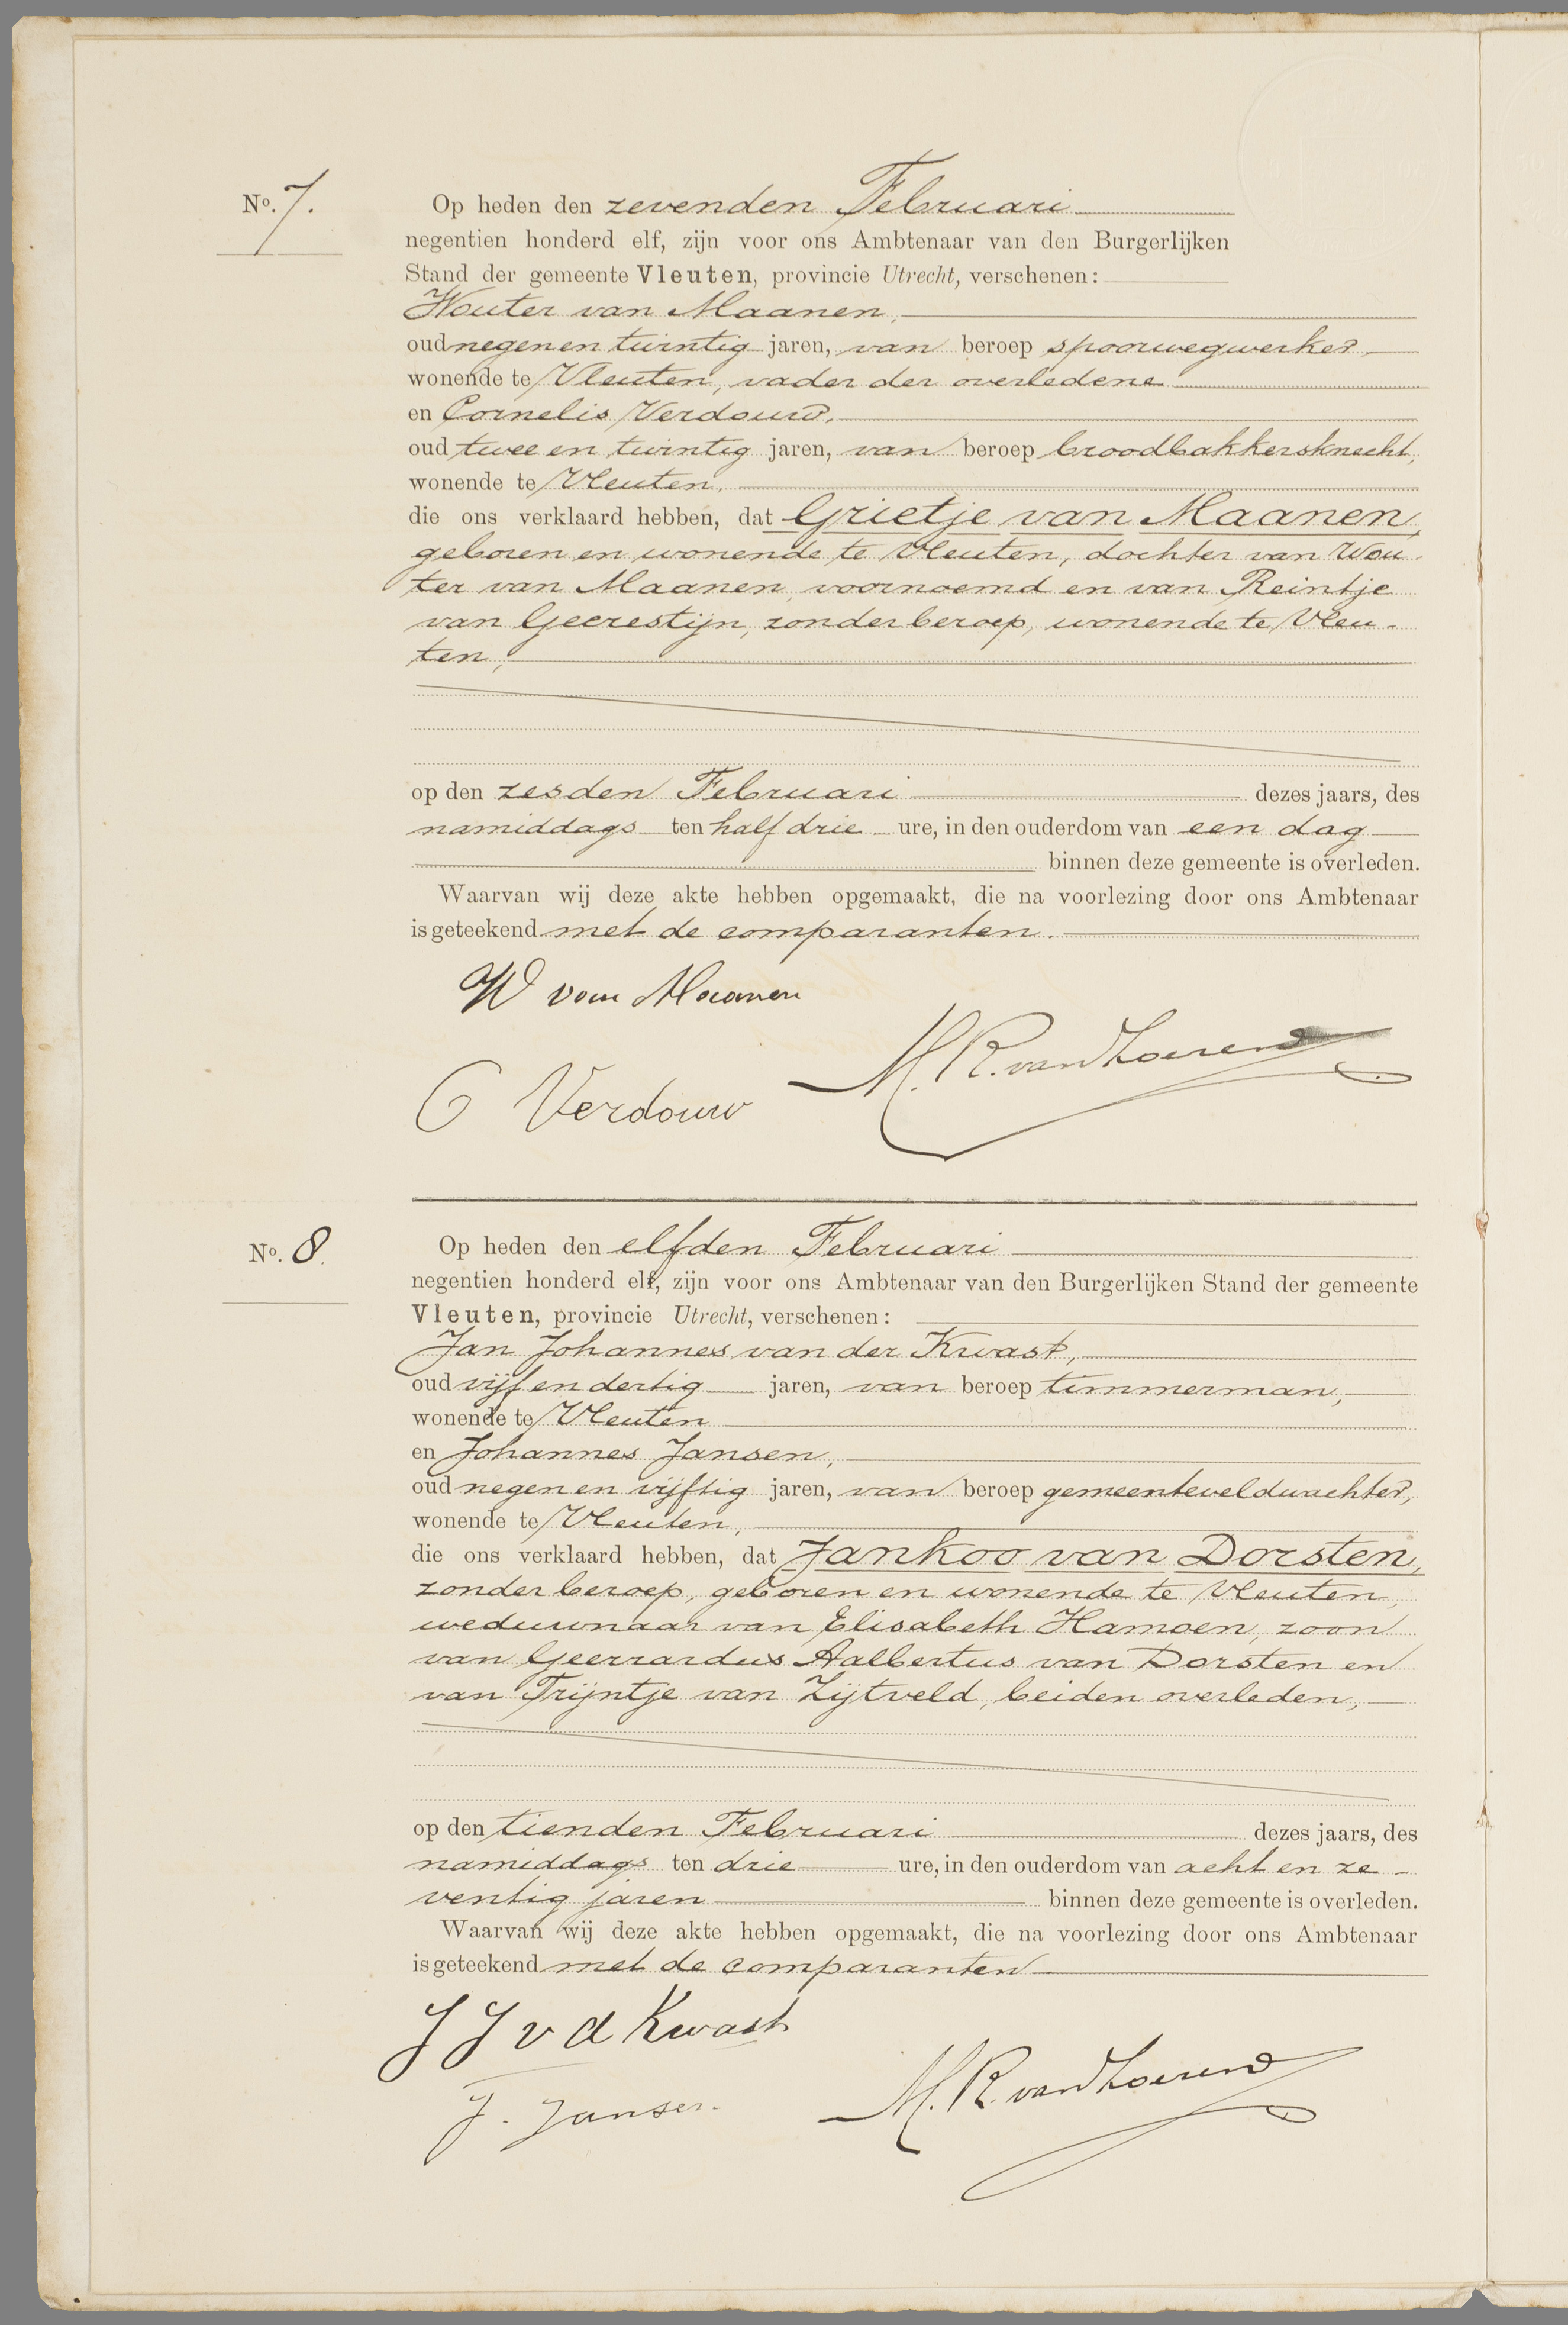 No. 7.
Op heden den zevenden Februari
negentien honderd elf, zijn voor ons Ambtenaar van den Burgerlijken
Stand der gemeente Vleuten, provincie Utrecht, verschenen:
Wouter van Maanen,
oud negen en twintig jaren, van beroep spoorwegwerker,
wonende te Vleuten, vader der overledene
en Cornelis Verdouw,
oud twee en twintig jaren, van beroep broodbakkersknecht,
wonende te Vleuten,
die ons verklaard hebben, dat Grietje van Maanen,
geboren en wonende te Vleuten, dochter van Wou-
ter van Maanen, voornoemd en van Reintje
van Geerestijn, zonder beroep, wonende te Vleu-
ten,
op den zesden Februari dezes jaars, des
namiddags ten half drie ure, in den ouderdom van een dag
binnen deze gemeente is overleden.
Waarvan wij deze akte hebben opgemaakt, die na voorlezing door ons Ambtenaar
is geteekend met de comparanten.
W van Maanen
M. R. van
C Verdouw
No. 8.
Op heden den elfden Februari
negentien honderd elf, zijn voor ons Ambtenaar van den Burgerlijken Stand der gemeente
Vleuten, provincie Utrecht, verschenen:
Jan Johannes van der Kwast,
oud vijf en dertig jaren, van beroep timmerman,
wonende te Vleuten
en Johannes Jansen,
oud negen en vijftig jaren, van beroep gemeenteveldwachter,
wonende te Vleuten,
die ons verklaard hebben, dat Jankoo van Dorsten,
zonder beroep, geboren en wonende te Vleuten,
weduwnaar van Elisabeth Hamoen, zoon
van Geerrardus Aalbertus van Dorsten en
van Trijntje van Zijtveld, beiden overleden,
op den tienden Februari dezes jaars, des
namiddags ten drie ure, in den ouderdom van acht en ze-
ventig jaren binnen deze gemeente is overleden.
Waarvan wij deze akte hebben opgemaakt, die na voorlezing door ons Ambtenaar
is geteekend met de comparanten
J J v d Kwast
M. R. van
J. Jansen.